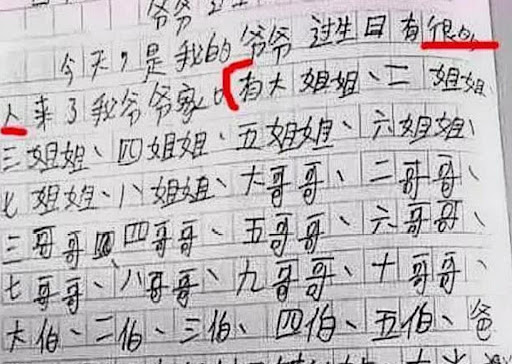 爷爷过生
今天,是我的爷爷过生日有很多
人来了我爷爷家,有大姐姐、二姐姐
三姐姐、四姐姐、五姐姐、六姐姐、
七姐姐、八姐姐、大哥哥、二哥哥、
三哥哥四哥哥、五哥哥、六哥哥、
七哥哥、八哥哥、九哥哥、十哥哥、
大伯、二伯、三伯、四伯、五伯、爸